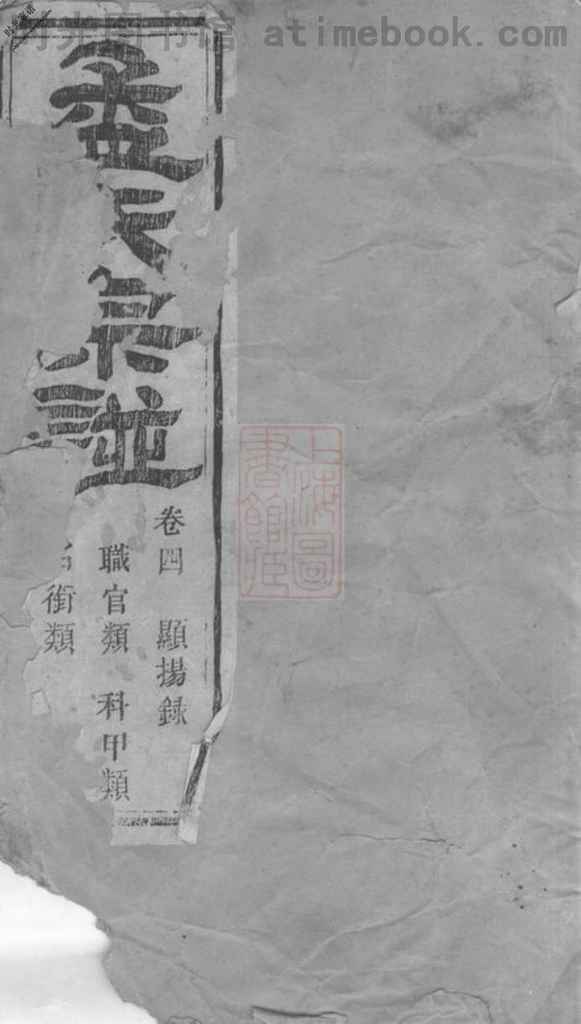 图书馆 atimebook.com
孟氏譜
卷四 顯揚録
職官類 科甲類
銜類
上海圖
書館藏